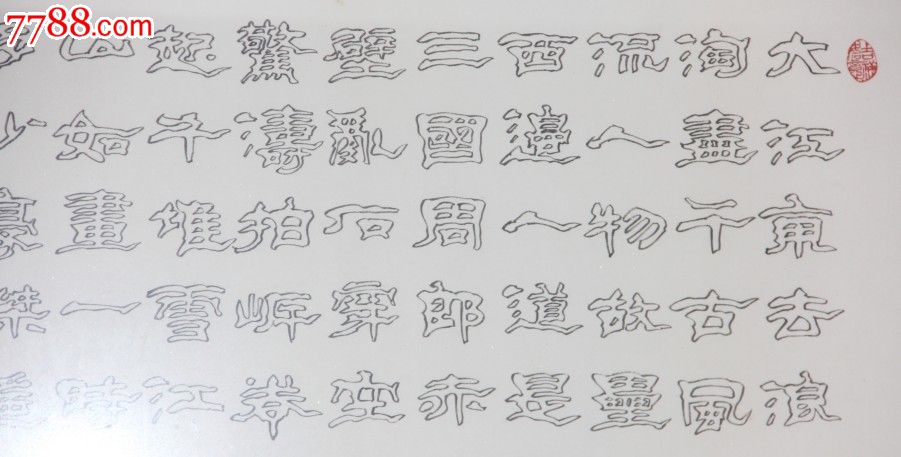 7788.com
大江東去浪
淘盡千古風
流人物故壘
西邊人道是
三國周郎赤
壁亂石穿空
驚濤拍岸卷
起千堆雪江
山如畫一時
多少豪傑